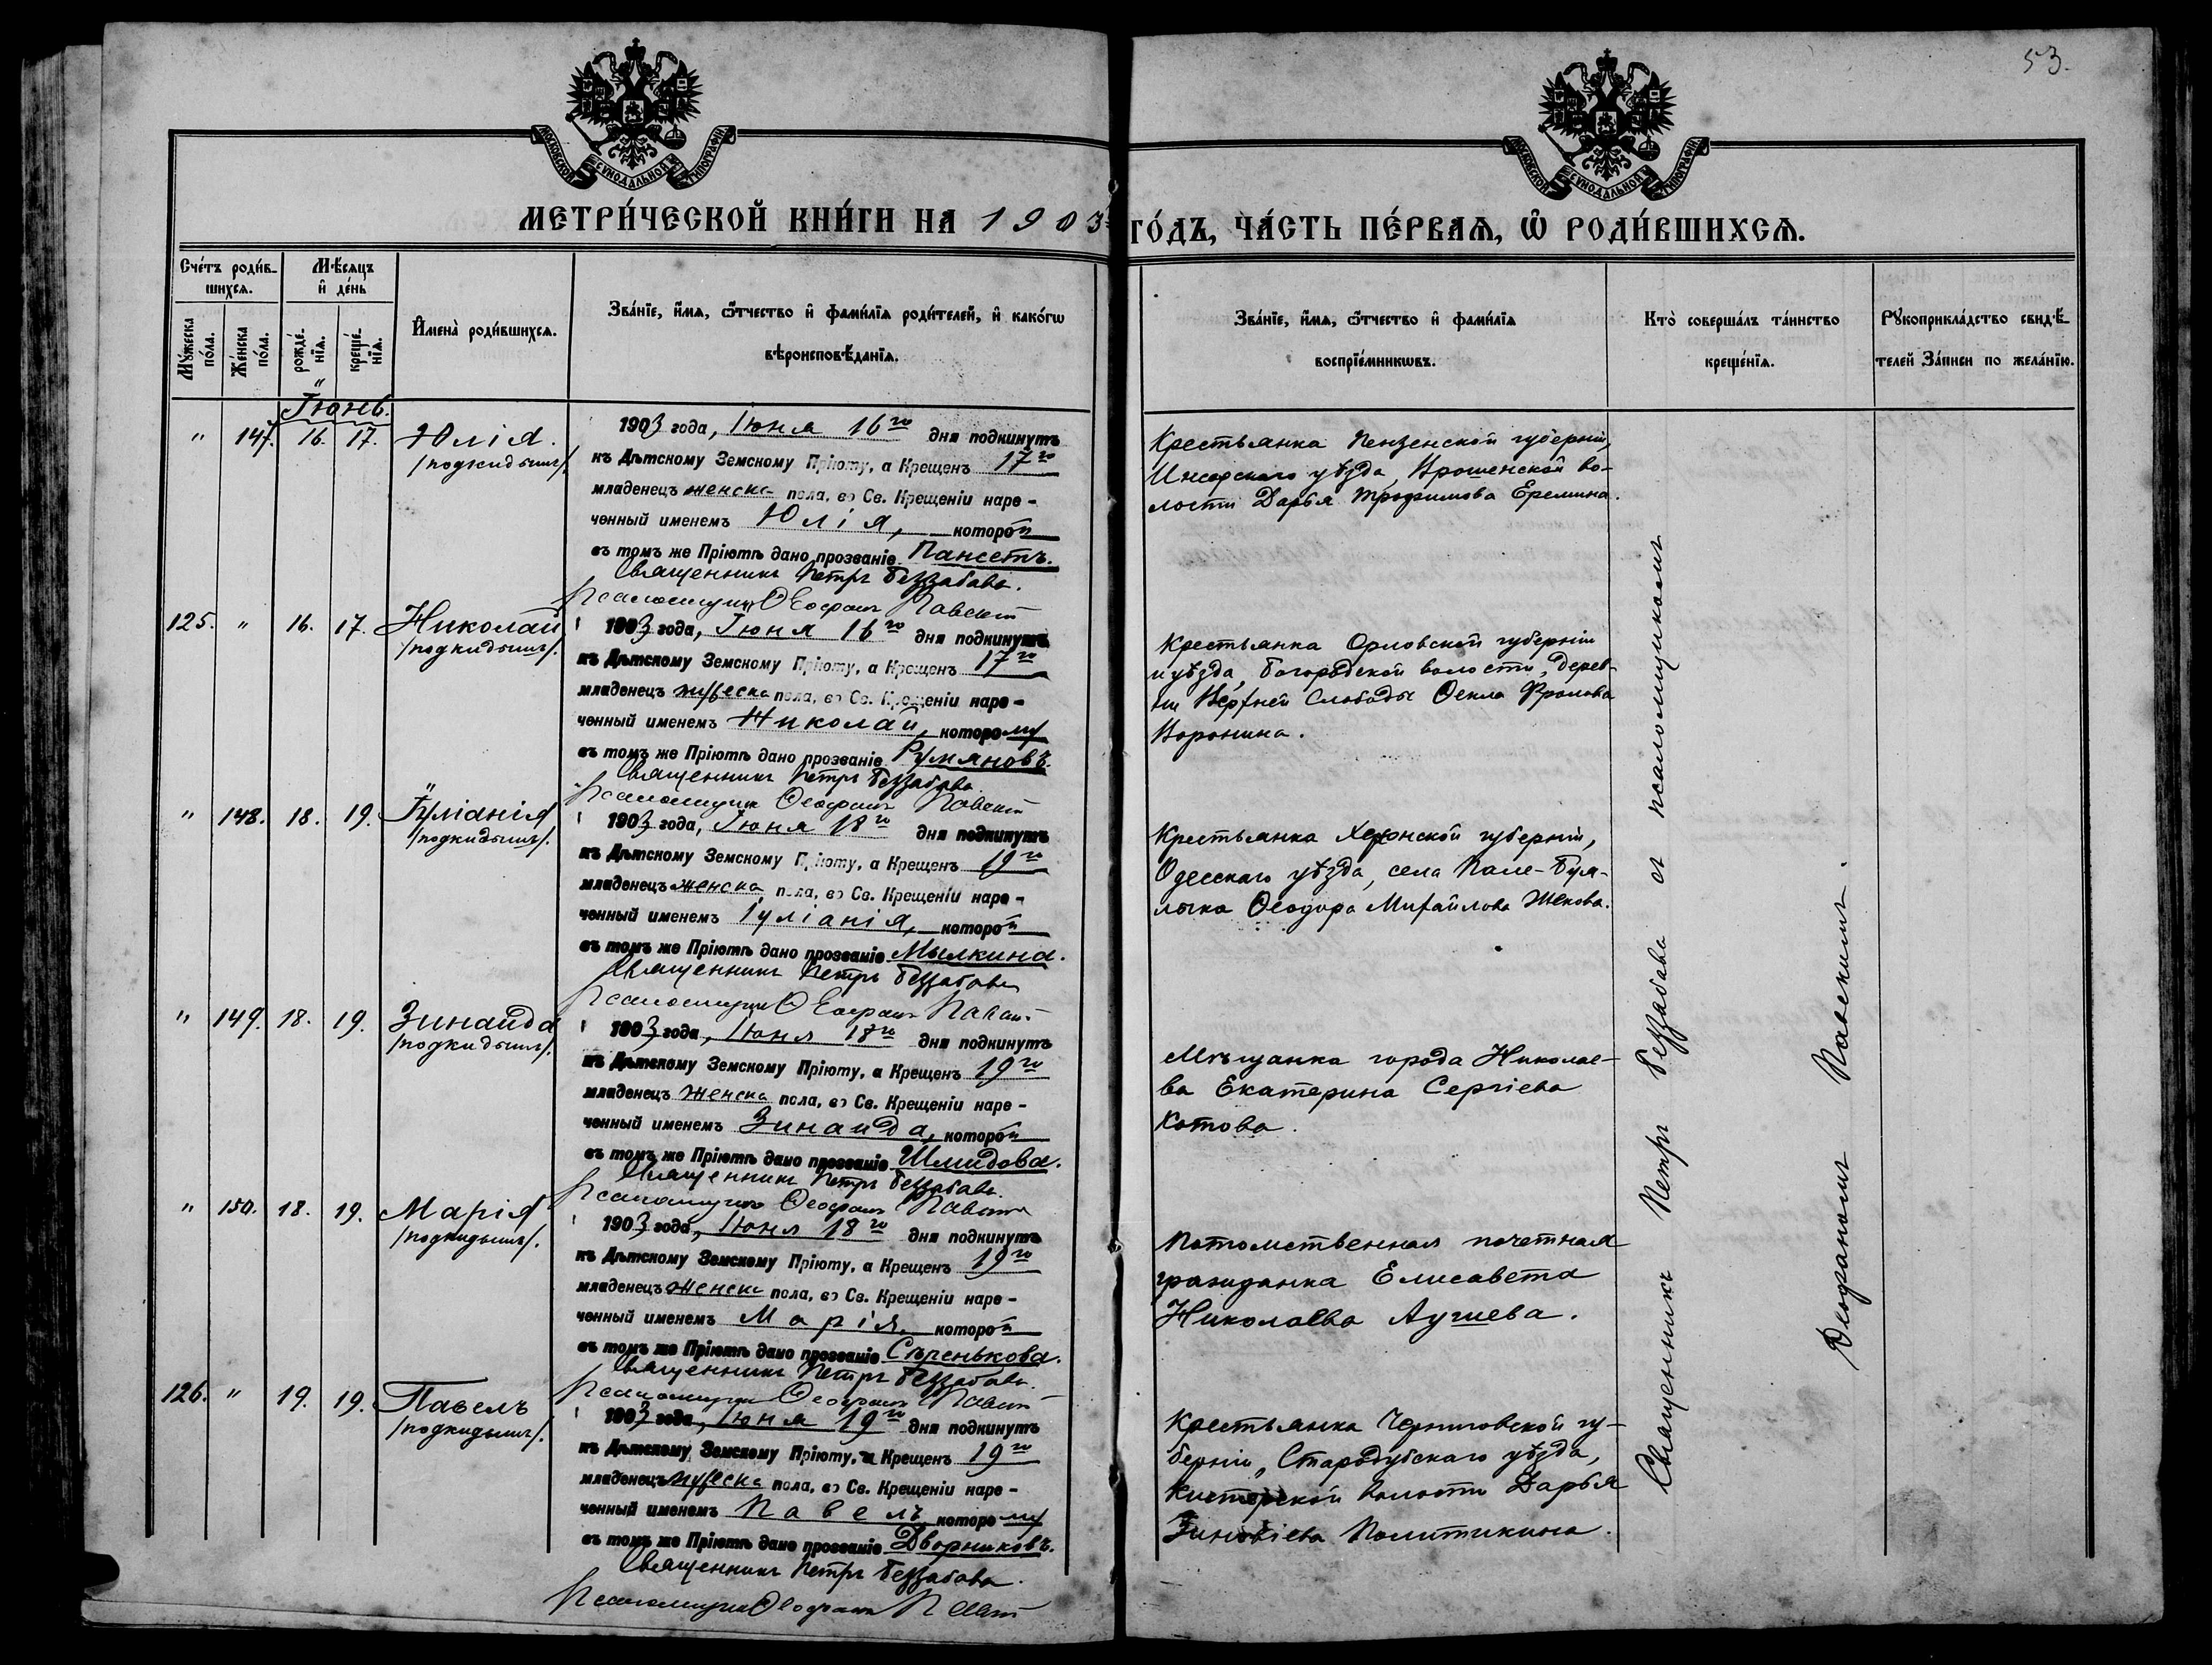 53.
МОСКОВСКОЙ СѴНОДАЛЬНОЙ ТИПОГРАФІИ
МОСКОВСКОЙ СѴНОДАЛЬНОЙ ТИПОГРАФІИ
МЕТРИ́ЧЕСКОЙ КНИ́ГИ НА 1903
ГО́ДЪ, ЧА́СТЬ ПЕ́РВАѦ, Ѽ РОДИ́ВШИХСѦ.
Сче́тъ роди́в-
шихсѧ.
Мѣ́сѧцъ
и҆ де́нь
Мꙋ́жеска
по́ла.
Же́нска
по́ла.
рожде́-
нїѧ.
креще́-
нїѧ.
И҆мена̀ роди́вшихсѧ.
Зва́нїе, и҆́мѧ, ѻ҆́тчество и҆ фами́лїѧ роди́телей, и҆ како́гѡ
вѣроисповѣ́данїѧ.
Зва́нїе, и҆́мѧ, ѻ҆́тчество и҆ фами́лїѧ
воспрїе́мникѡвъ.
Кто̀ соверша́лъ та́инство
креще́нїѧ.
Рꙋкоприкла́дство свидѣ́-
телей за́писи по жела́нїю.
Іюнь.
" 147. 16. 17. Юлія.
/подкидышъ/.
1903 года, Іюня 16го дня подкинутъ
къ Дѣтскому Земскому Пріюту, а Крещенъ 17го
младенецъ женска пола, во Св. Крещеніи наре-
ченный именемъ Юлія, которой
въ томъ же Пріютѣ дано прозваніе Пансетъ.
Священникъ Петръ Беззабава.
Псаломщикъ Ѳеофанъ Павскій
Крестьянка Пензенской губерніи,
Инсарскаго уѣзда, во-
лости Дарья Трофимова Еремина.
125. " 16. 17. Николай
/подкидышъ/.
1903 года, Іюня 16го дня подкинутъ
къ Дѣтскому Земскому Пріюту, а Крещенъ 17го
младенецъ мужеска пола, во Св. Крещеніи наре-
ченный именемъ Николай, которому
въ томъ же Пріютѣ дано прозваніе Румяновъ.
Священникъ Петръ Беззабава.
Псаломщикъ Ѳеофанъ Павскій
Крестьянка Орловской губерніи
и уѣзда, Богородской волости, дерев-
ни Верхней Слободы Ѳекла Фролова
Воронина.
" 148. 18. 19. Іуліанія
/подкидышъ/.
1903 года, Іюня 18го дня подкинутъ
къ Дѣтскому Земскому Пріюту, а Крещенъ 19го
младенецъ женска пола, во Св. Крещеніи наре-
ченный именемъ Іуліанія, которой
въ томъ же Пріютѣ дано прозваніе Мылкина.
Священникъ Петръ Беззабава
Псаломщикъ Ѳеофанъ Павскій
Крестьянка Херсонской губерніи,
Одесскаго уѣзда, села Пале-Буя-
лыка Ѳеодора Михайлова Жекова.
" 149. 18. 19. Зинаида
/подкидышъ/.
1903 года, Іюня 18го дня подкинутъ
къ Дѣтскому Земскому Пріюту, а Крещенъ 19го
младенецъ женска пола, во Св. Крещеніи наре-
ченный именемъ Зинаида, которой
въ томъ же Пріютѣ дано прозваніе Шмидова.
Священникъ Петръ Беззабава.
Псаломщикъ Ѳеофанъ Павскій
Мѣщанка города Николае-
ва Екатерина Сергіева
Котова.
" 150. 18. 19. Марія
/подкидышъ/.
1903 года, Іюня 18го дня подкинутъ
къ Дѣтскому Земскому Пріюту, а Крещенъ 19го
младенецъ женска пола, во Св. Крещеніи наре-
ченный именемъ Марія, которой
въ томъ же Пріютѣ дано прозваніе Сѣренькова.
Священникъ Петръ Беззабава.
Псаломщикъ Ѳеофанъ Павскій
Потомственная почетная
гражданка Елисавета
Николаева
126. " 19. 19. Павелъ
/подкидышъ/.
1903 года, Іюня 19го дня подкинутъ
къ Дѣтскому Земскому Пріюту, а Крещенъ 19го
младенецъ мужеска пола, во Св. Крещеніи наре-
ченный именемъ Павелъ, которому
въ томъ же Пріютѣ дано прозваніе Дворниковъ.
Священникъ Петръ Беззабава.
Псаломщикъ Ѳеофанъ Павскій
Крестьянка Черниговской гу-
берніи, Стародубскаго уѣзда,
волости Дарья
Зиновіева Политикина.
Священникъ Петръ Беззабава съ псаломщикомъ
Ѳеофаномъ Павскимъ.